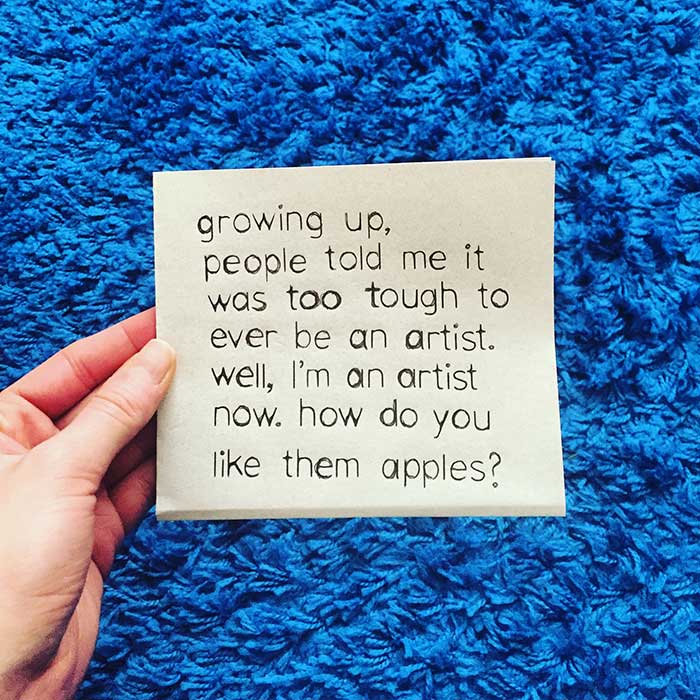 growing up,
people told me it
was too tough to
ever be an artist.
well, I'm an artist
now. how do you
like them apples?